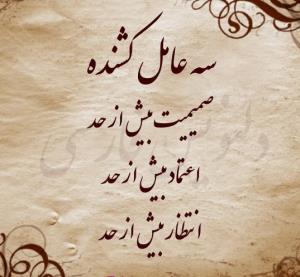 سه عامل کشنده
صمیمیت بیش از حد
اعتماد بیش از حد
انتظار بیش از حد